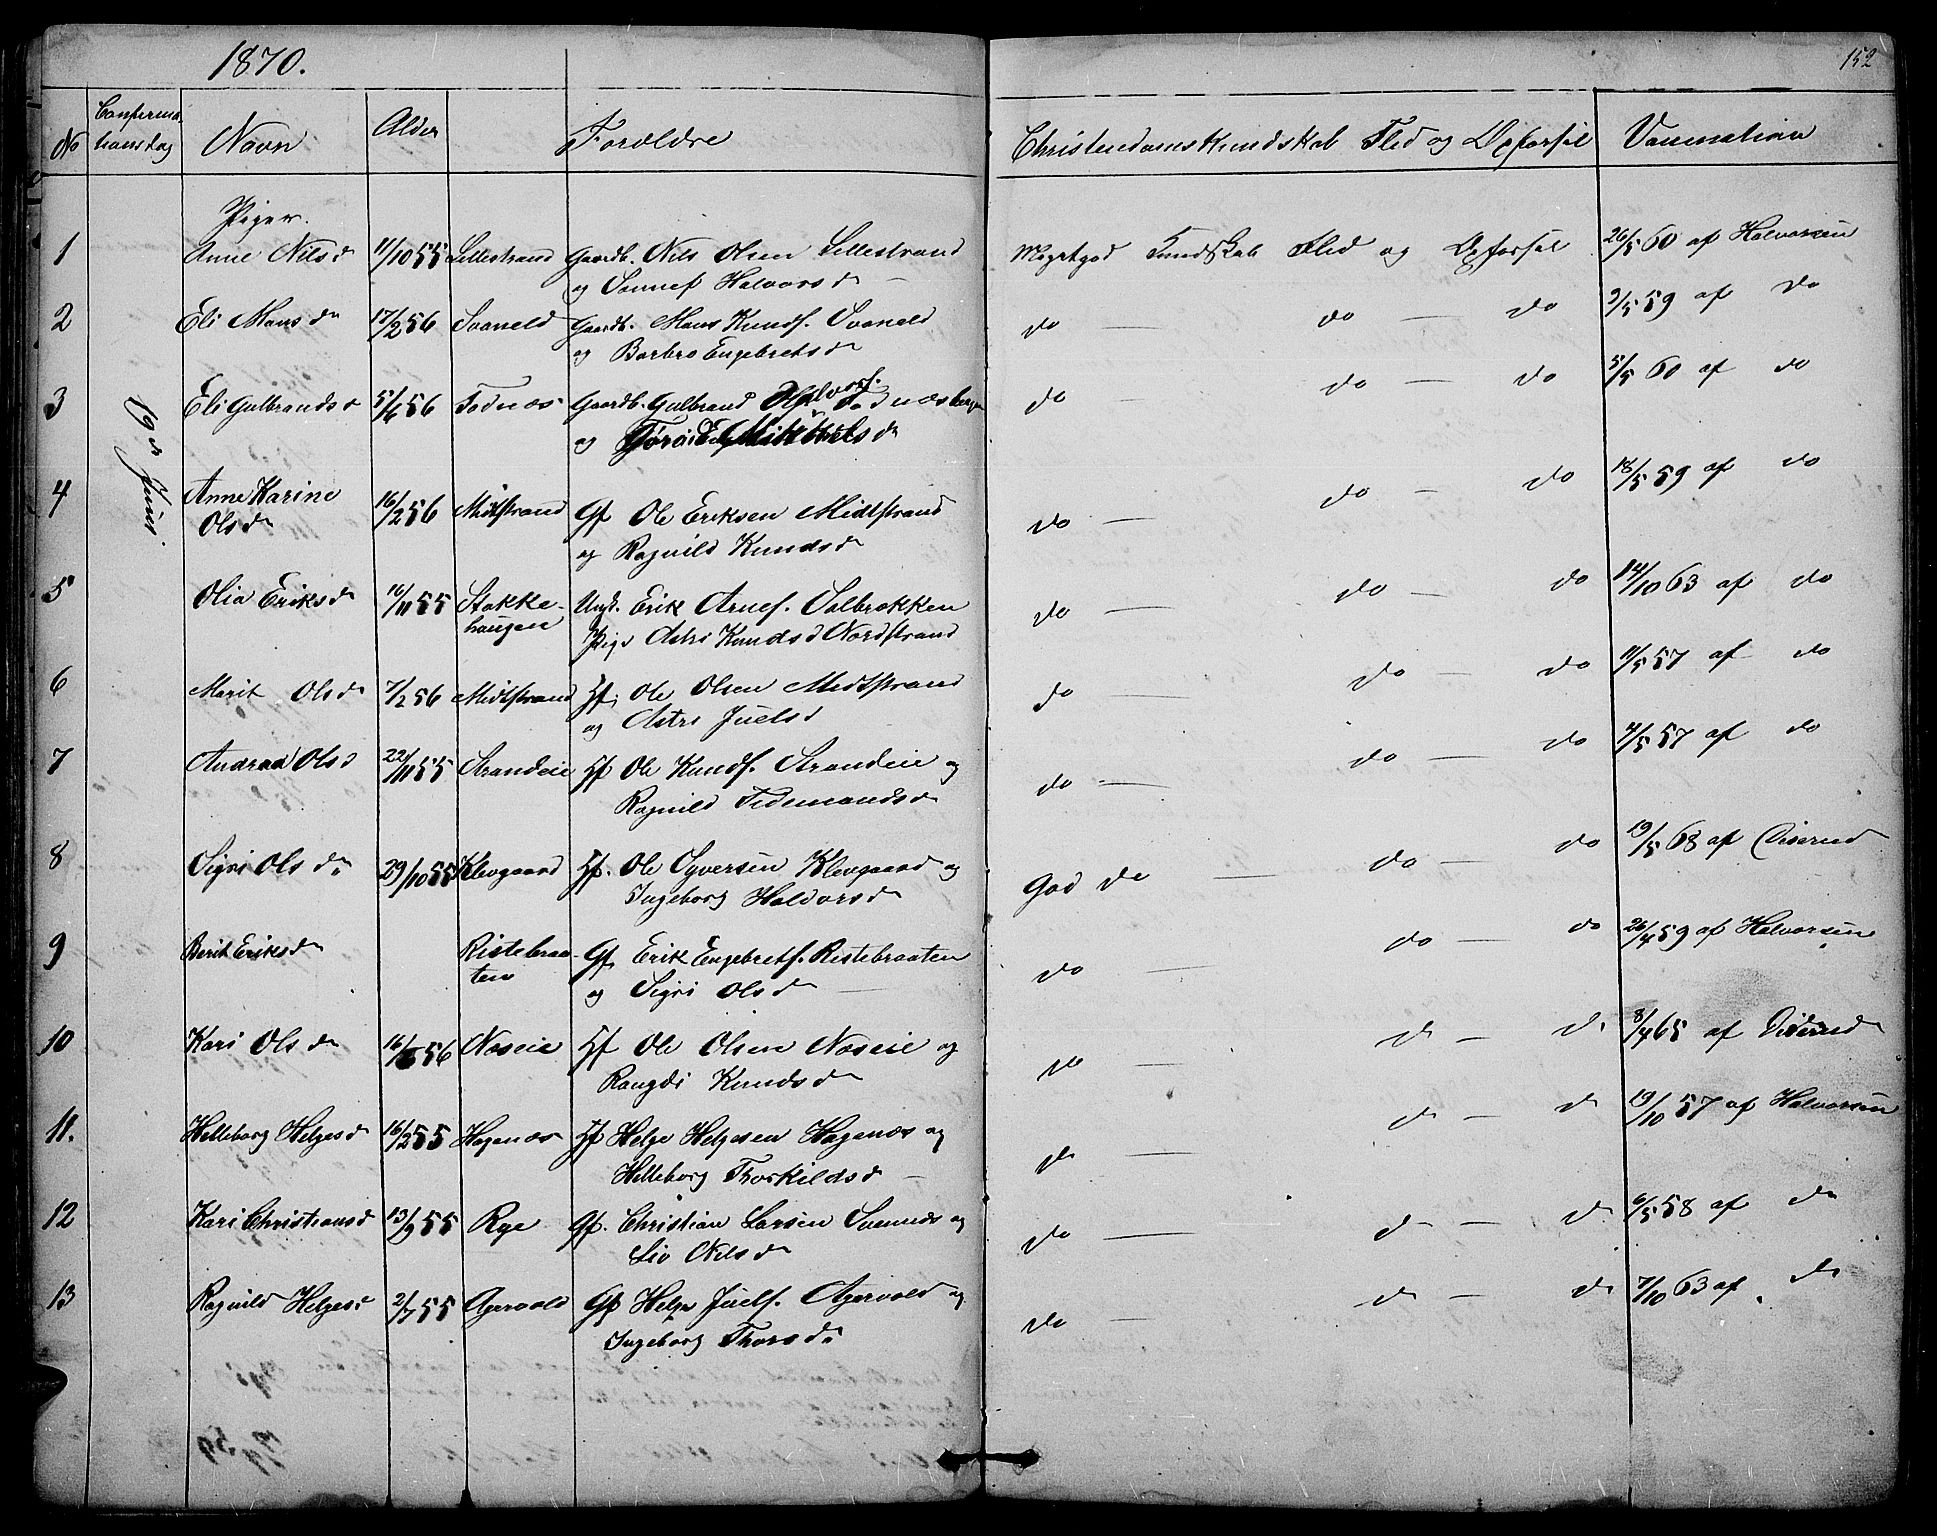 1870.
152
No Confirmationsdag Navn Alder Forældre Christendoms Kundskab Flid og Opførsel Vaccination
19de Juni.
Piger.
1 Anne Nilsd 11/10 55 Lillestrand Gaardb. Nils Olsen Lillestrand Megetgod Kundskab Flid og Opførsel 26/5 60 af Halvorsen
og Halvorsd
2 Eli Mons d 17/2 56 Svaneld Gaardb. Mons Knuds. Svaneld do — do — do 2/5 59 af do
og Barbro Engebretsd
3 Eli Gulbrandsd 5/6 56 Todnæs Gaardb. Gulbrand Halvors. do — do — do 5/5 60 af do
og
4 Anne Karine 16/2 56 Midtstrand Gf Ole Eriksen Midtstrand do — do — do 18/5 59 af do
Olsd og Ragnild Knudsd
5 Olia Eriksd 16/11 55 Stokke- Ungk. Erik Arnes. Solbrækken do — do — do 14/10 63 af do
haugen Pige Astri Knudsd Nordstrand
6 Marit Olsd 7/2 56 Midtstrand Hf. Ole Olsen Midtstrand do — do — do 11/5 57 af do
og Astri Juelsd
7 Andrea Olsd 22/11 55 Strandeie Hf Ole Knuds. Strandeie og do — do — do 4/5 57 af do
Ragnild Tidemandsd
8 Sigri Olsd 29/10 55 Klevgaard Hf. Ole Syversen Klevgaard og God do — do — do 19/5 68 af Diserud
Ingeborg Halvorsd
9 Berit Eriksd Ristebraa- Gf Erik Engebrets. Ristebraaten do — do — do 26/4 59 af Halvorsen
ten og Sigri Olsd —
10 Kari Olsd 16/ 56 Næseie Hf Ole Olsen Næseie og do — do — do 8/4 65 af Diserud
Rangdi Knudsd
11. Helleborg Helgesd 16/2 55 Hagenæs Hf Helge Helgesen Hagenæs og do — do — do 19/10 57 af Halvorsen
Helleborg Thorkildsd —
12 Kari Christiansd 13/9 55 Rye Gf. Christian Larsen og do — do — do 6/5 58 af do
Liv Nilsd
13 Ragnild Helgesd 2/7 55 Agervold Gf Helge Juels. Agervold og do — do — do 7/10 63 af do
Ingeborg Thorsd